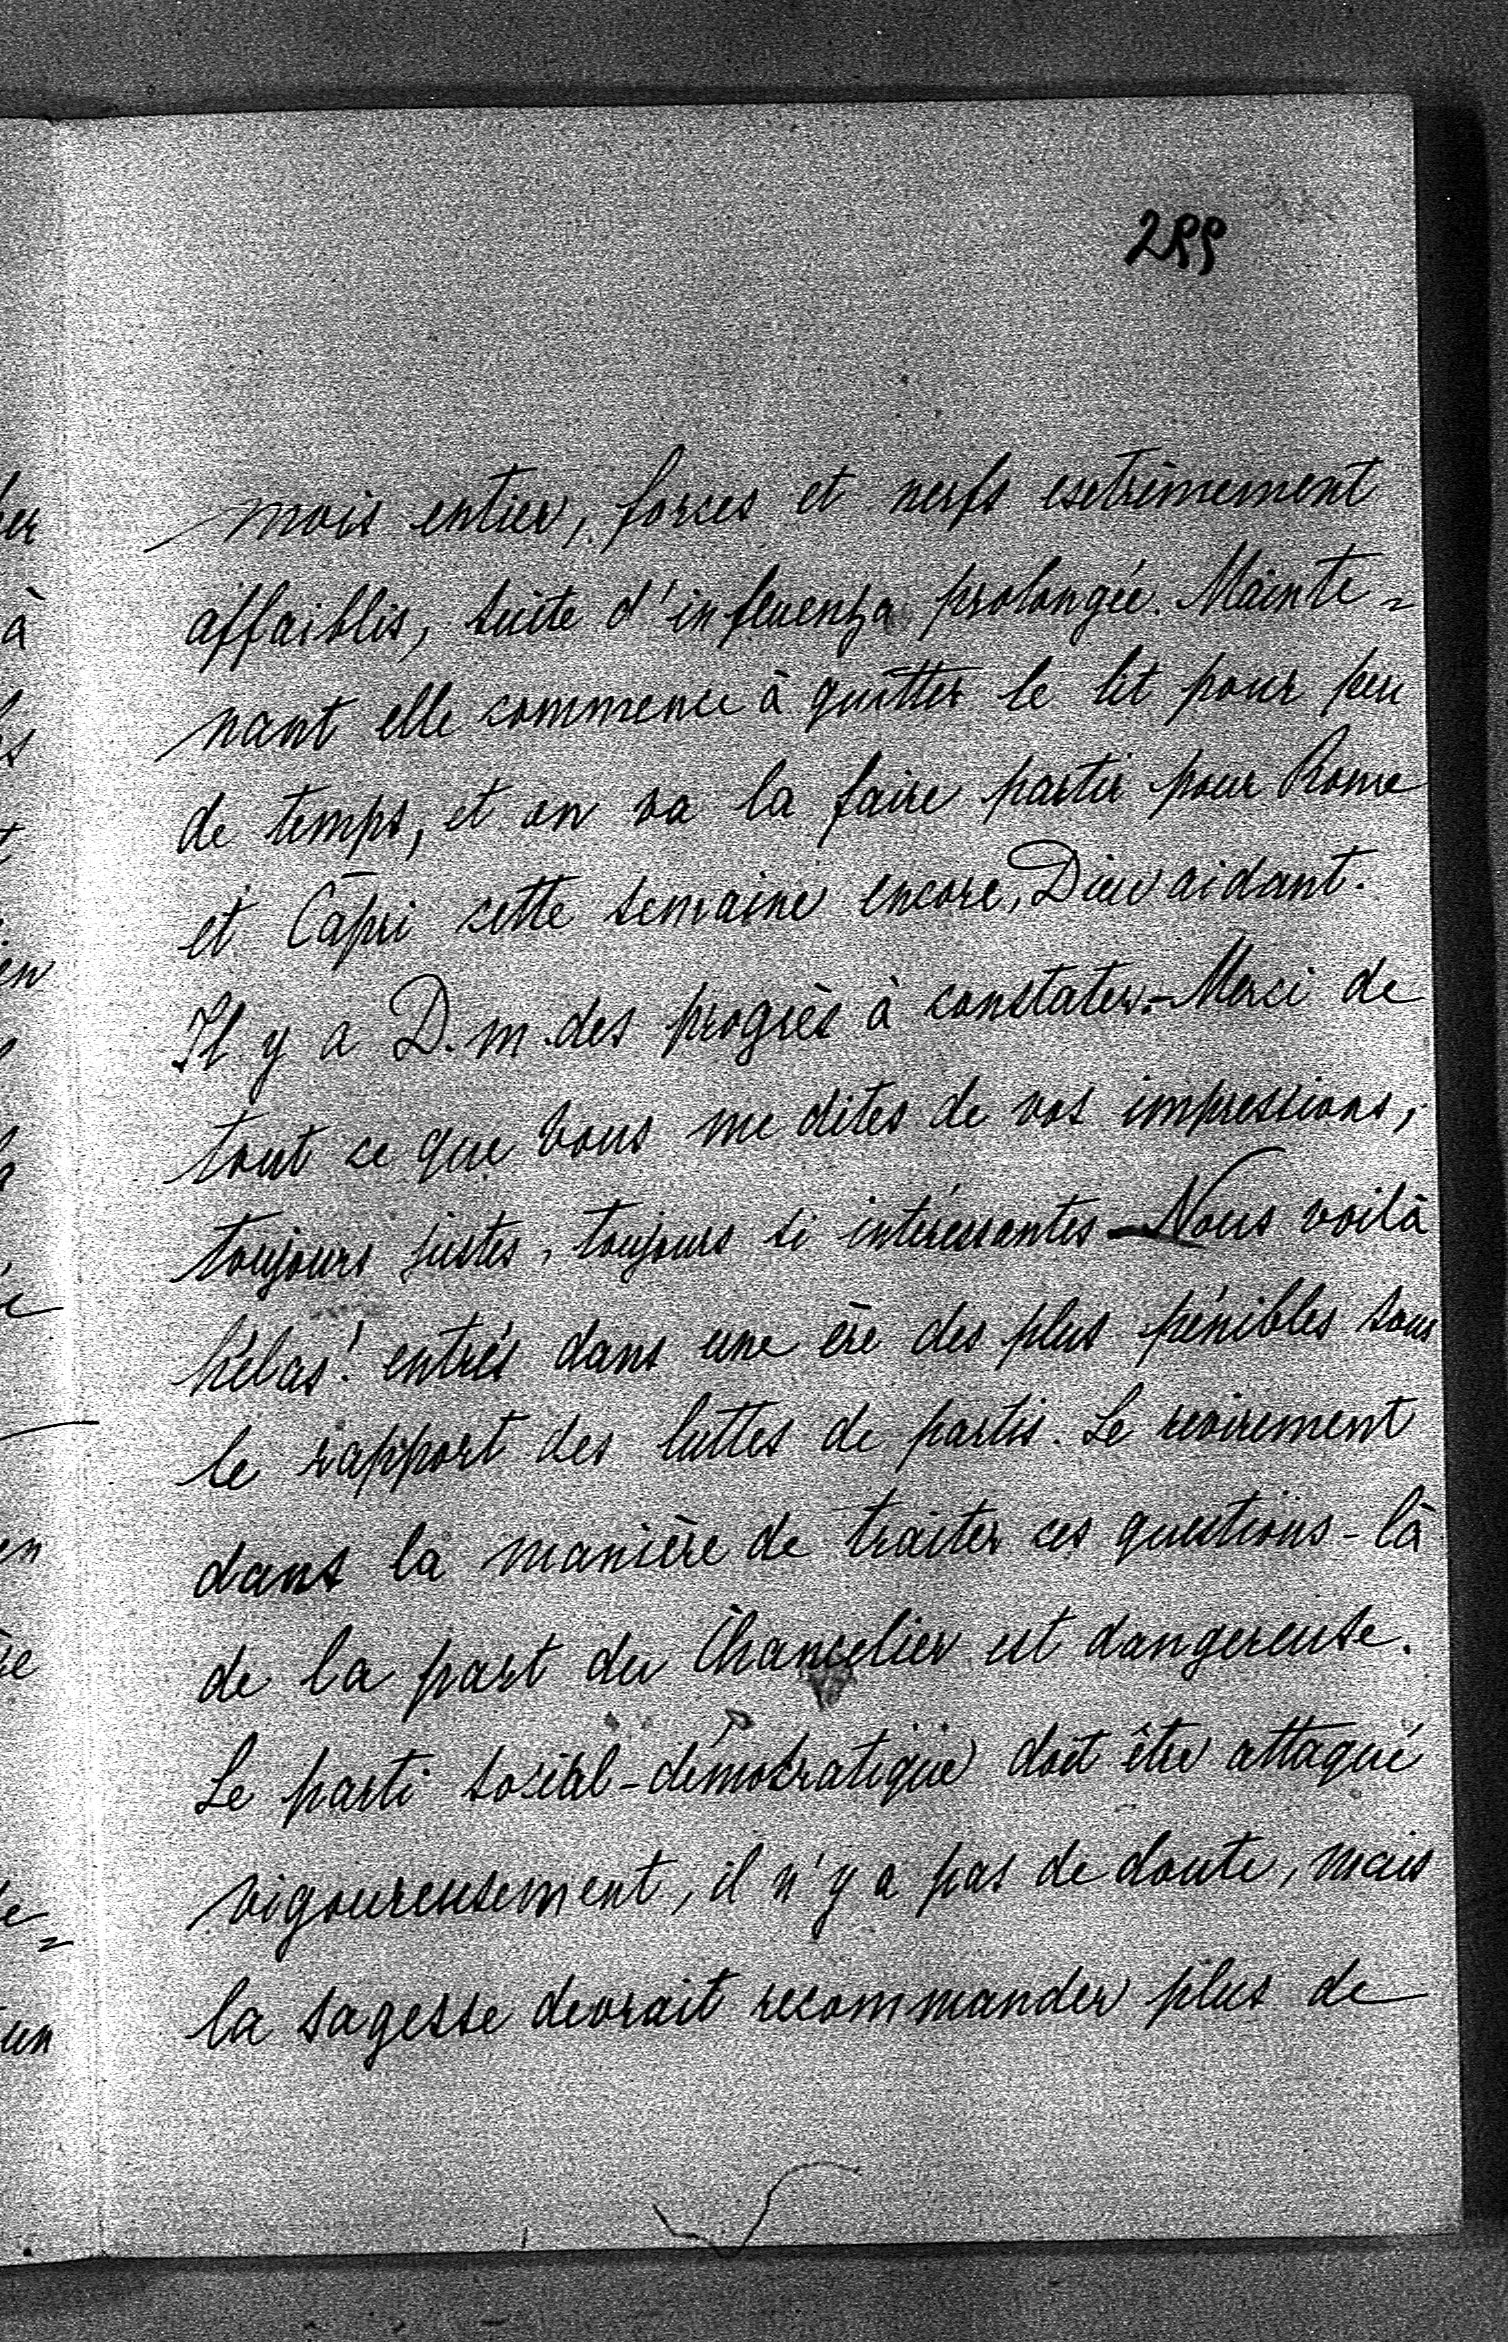 299
mois entier, forces et nerfs extrêmement
affaiblis, suite d'influenza prolongée. Mainte=
nant elle commence à quitter le lit pour peu
de temps, et on va la faire partir pour Rome
et Capri cette semaine encore, Dieu aidant.
Il y a D. m. des progrès à constater. - Merci de
tout ce que vous me dites de vos impressions,
toujours justes, toujours si intéressantes - Nous voilà
hélas! entrés dans une ère des plus pénibles sous
le rapport des luttes de partis. Le revirement
dans la manière de traiter ces questions-là
de la part du Chancelier est dangereuse.
Le parti social-démocratique doit être attaqué
vigoureusement, il n'y a pas de doute, mais
la sagesse devrait recommander plus de